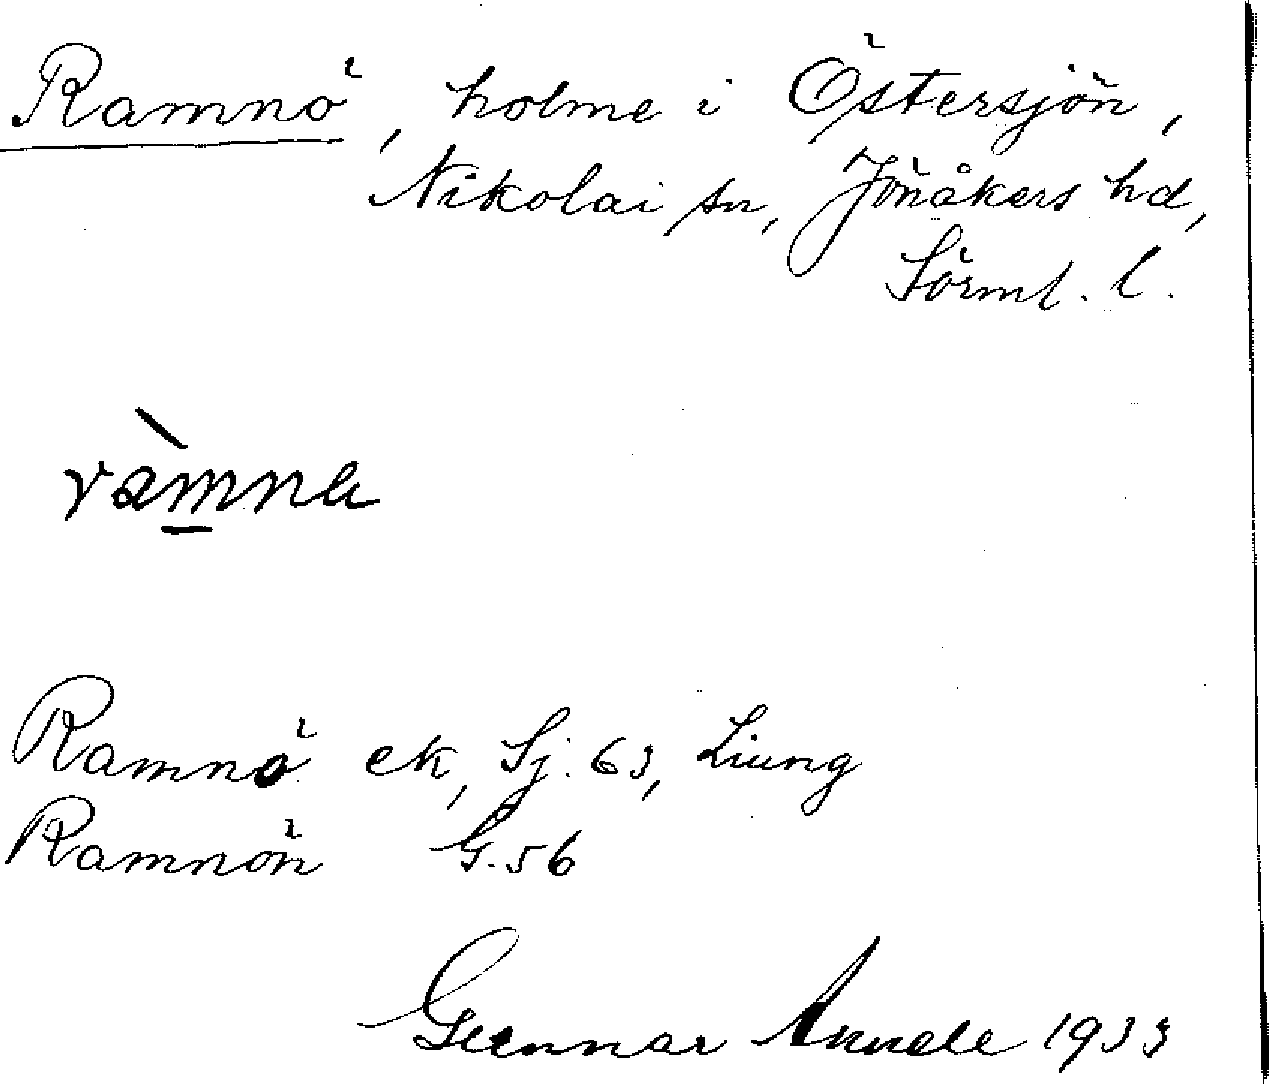 Ramnö, holme i Östersjön,
Nikolai sn, Jönåkers hd,
Sörml. l.
ràmna
Ramnö ek, Sj. 63, Liung
Ramnön G. 56
Gunnar 1933